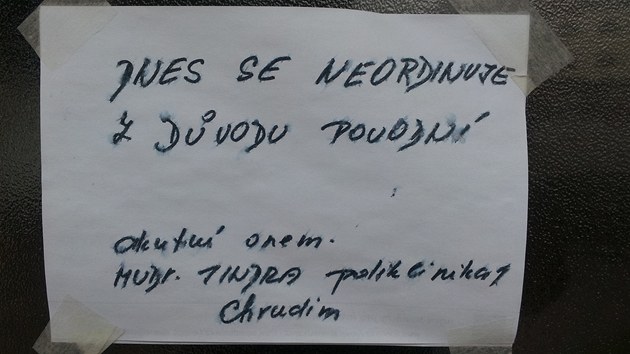 DNES SE NEORDINUJE
Z DŮVODU POVODNÍ
akutní onem.
MUDr. JINDRA poliklinika
Chrudim